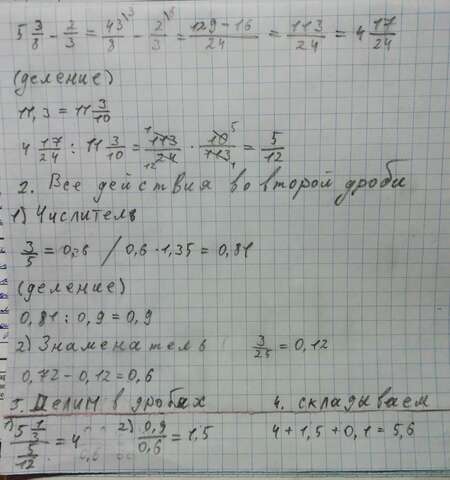 5 3/8 - 2/3 = 43/8 \3 - 2/3 \8 = 129-16/24 = 113/24 = 4 17/24
(деление)
11,3 = 11 3/10
4 17/24 : 11 3/10 = 113/24 · 10/113 = 5/12
2. Все действия во второй дроби
1) Числитель
3/5 = 0,6 / 0,6 · 1,35 = 0,81
(деление)
0,81 : 0,9 = 0,9
2) Знаменатель 3/25 = 0,12
0,72 - 0,12 = 0,6
3. Делим в дробях 4. складываем
1) 5 1/3 / 5/12 = 4 2) 0,9/0,6 = 1,5 4 + 1,5 + 0,1 = 5,6